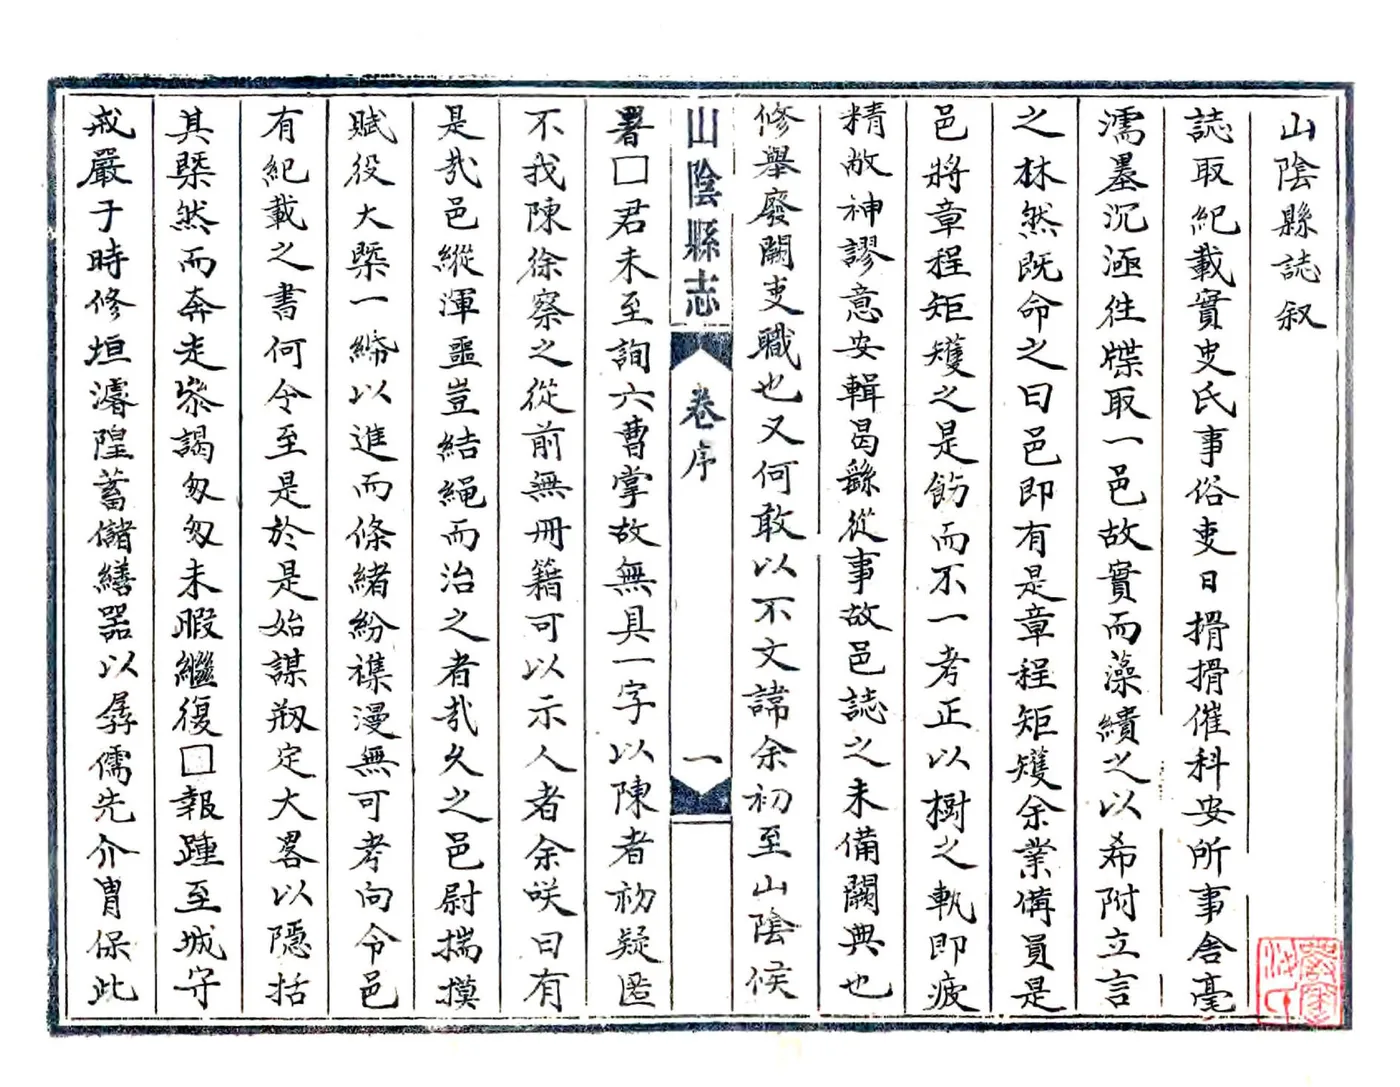 山陰縣誌叙
誌取紀載實史氏事俗吏日搰搰催科安所事舍毫
濡墨沉湎往牒取一邑故實而藻繢之以希附立言
之林然既命之曰邑即有是章程矩矱余業備員是
邑將章程矩矱之是飭而不一考正以樹之軌即疲
精敝神謬意安輯曷繇從事故邑誌之未備闕典也
修舉廢闕吏職也又何敢以不文諱余初至山陰候
山陰縣志
卷序
一
署□君未至詢六曹掌故無具一字以陳者初疑匿
不我陳徐察之從前無冊籍可以示人者余咲曰有
是哉邑縱渾噩豈結繩而治之者哉久之邑尉揣摸
賦役大槩一䌷以進而條緒紛襍漫無可考向令邑
有紀載之書何令至是於是始謀刱定大畧以隱括
其槩然而奔走叅謁匆匆未暇繼復□報踵至城守
戒嚴于時修垣濬隍蓄儲繕器以孱儒先介胄保此